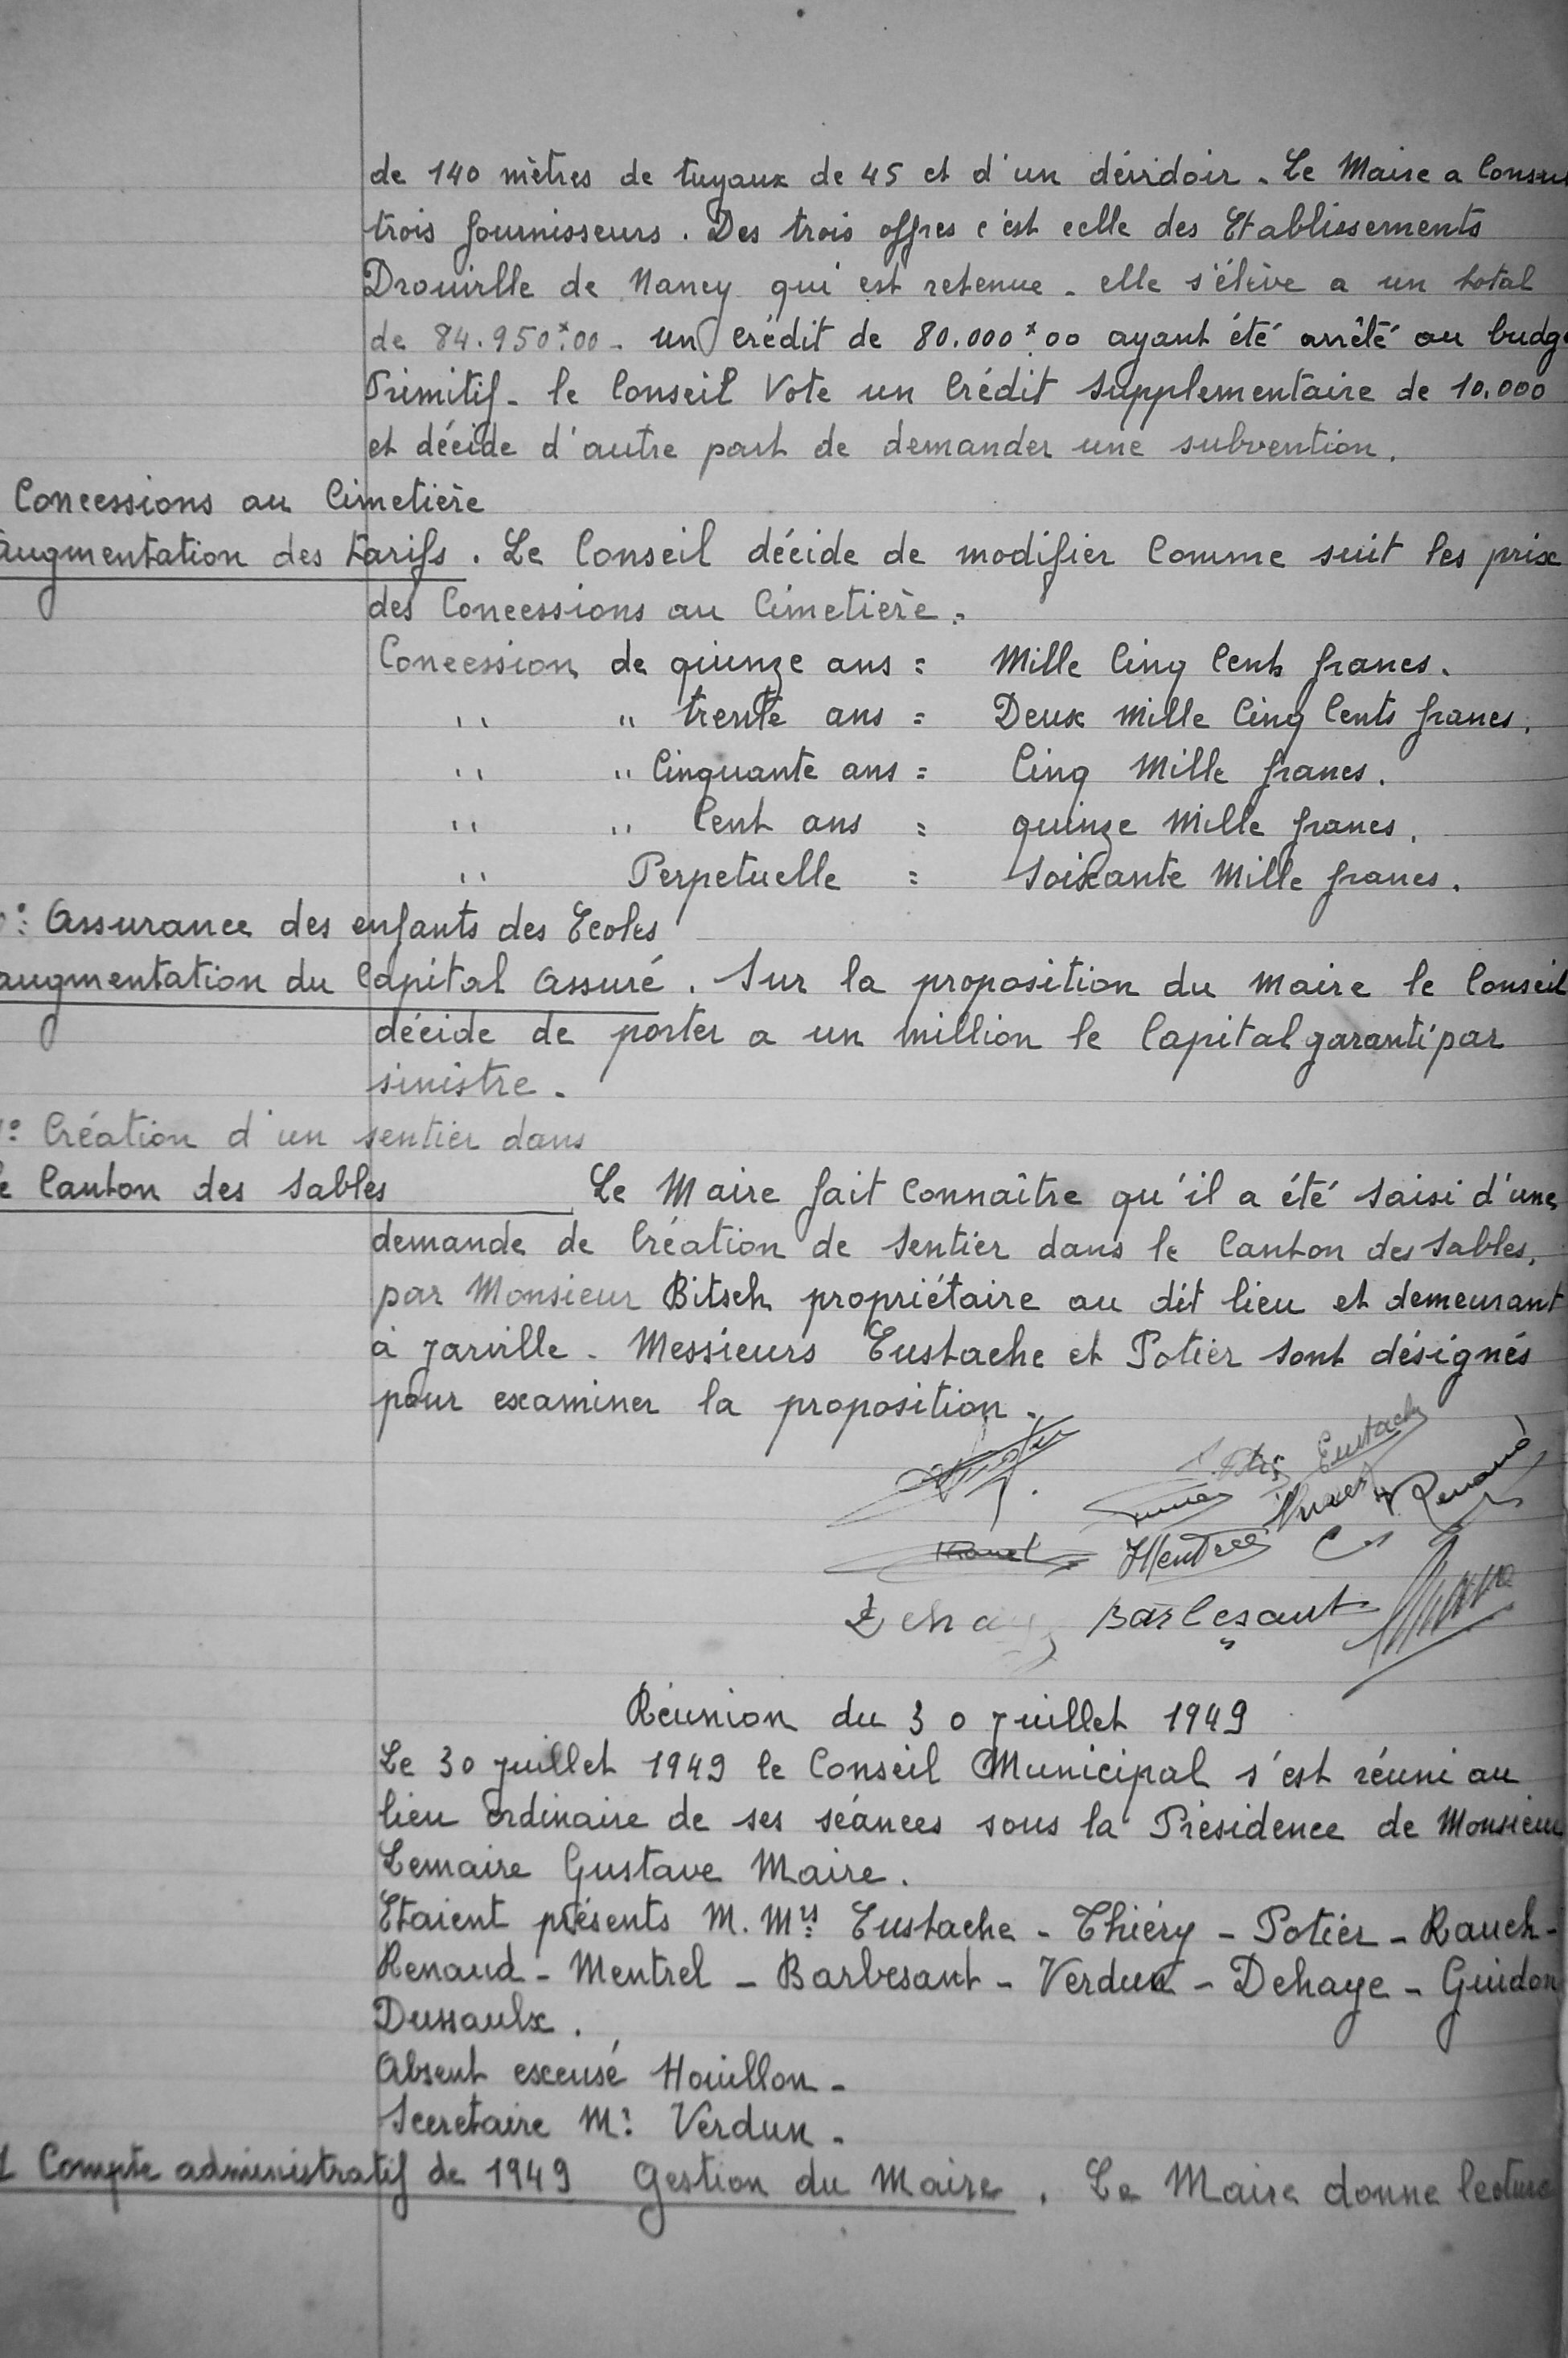 de 140 mètres de tuyaux de 45 et d'un dévidoir. Le Maire a
trois fournisseurs. Des trois offres c'est celle des Etablissements
Drouville de Nancy qui est retenue. elle s'élève a un total
de 84.950ᶠ.00. un crédit de 80.000ᶠ.00 ayant été arrêté au
Primitif. le Conseil Vote un Crédit supplementaire de 10.000
et décide d'autre part de demander une subvention.
Concessions au Cimetière
augmentation des tarifs. Le Conseil décide de modifier Comme suit les prix
des Concessions au Cimetière.
Concession de quinze ans = Mille Cinq Cents francs.
" " trente ans = Deux Mille Cinq Cents francs.
" " Cinquante ans = Cinq Mille francs.
" " Cent ans = quinze Mille francs.
" Perpetuelle = Soixante Mille francs.
Assurance des enfants des Ecoles
augmentation du Capital assuré. Sur la proposition du Maire le Conseil
décide de porter a un million le Capital garanti par
sinistre.
Création d'un sentier dans
Canton des Sables Le Maire fait Connaître qu'il a été saisi d'une
demande de Création de sentier dans le Canton des Sables,
par Monsieur Bitsch propriétaire au dit lieu et demeurant
à Jarville. Messieurs Eustache et Potier sont désignés
pour examiner la proposition.
Eustache
Renaud
Barbesant
Réunion du 30 Juillet 1949
Le 30 Juillet 1949 le Conseil Municipal s'est réuni au
lieu ordinaire de ses séances sous la Présidence de Monsieur
Lemaire Gustave Maire.
Etaient présents M.Mrs Eustache - Thiéry - Potier - Rauch -
Renaud - Mentrel - Barbesant - Verdun - Dehaye - Guidon
Dussaulx.
Absent excusé Houillon -
Secretaire Mr Verdun -
1 Compte administratif de 1949 Gestion du Maire. Le Maire donne lecture